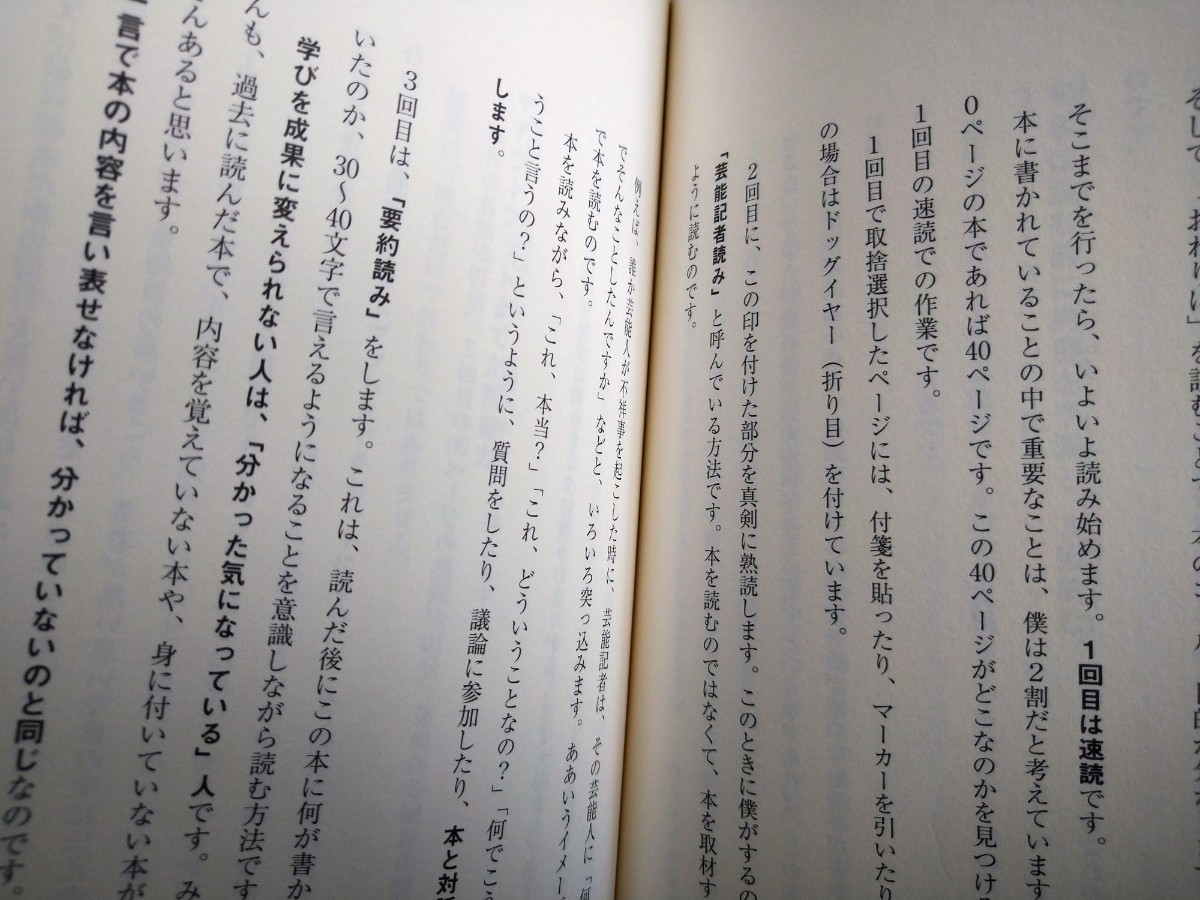 そこまでを行ったら、いよいよ読み始めます。1回目は速読です。
本に書かれていることの中で重要なことは、僕は2割だと考えています
0ページの本であれば40ページです。この40ページがどこなのかを見つけ
1回目の速読での作業です。
1回目で取捨選択したページには、付箋を貼ったり、マーカーを引いたり
の場合はドッグイヤー（折り目）を付けています。
2回目に、この印を付けた部分を真剣に熟読します。このときに僕がするの
「芸能記者読み」と呼んでいる方法です。本を読むのではなくて、本を取材す
ように読むのです。
例えば、誰か芸能人が不祥事を起こした時に、芸能記者は、その芸能人に「何
でそんなことしたんですか」などと、いろいろ突っ込みます。ああいうイメー
で本を読むのです。
本を読みながら、「これ、本当？」「これ、どういうことなの？」「何でこう
うこと言うの？」というように、質問をしたり、議論に参加したり、本と対
します。
3回目は、「要約読み」をします。これは、読んだ後にこの本に何が書か
いたのか、30〜40文字で言えるようになることを意識しながら読む方法です
学びを成果に変えられない人は、「分かった気になっている」人です。み
んも、過去に読んだ本で、内容を覚えていない本や、身に付いていない本が
んあると思います。
一言で本の内容を言い表せなければ、分かっていないのと同じなのです。